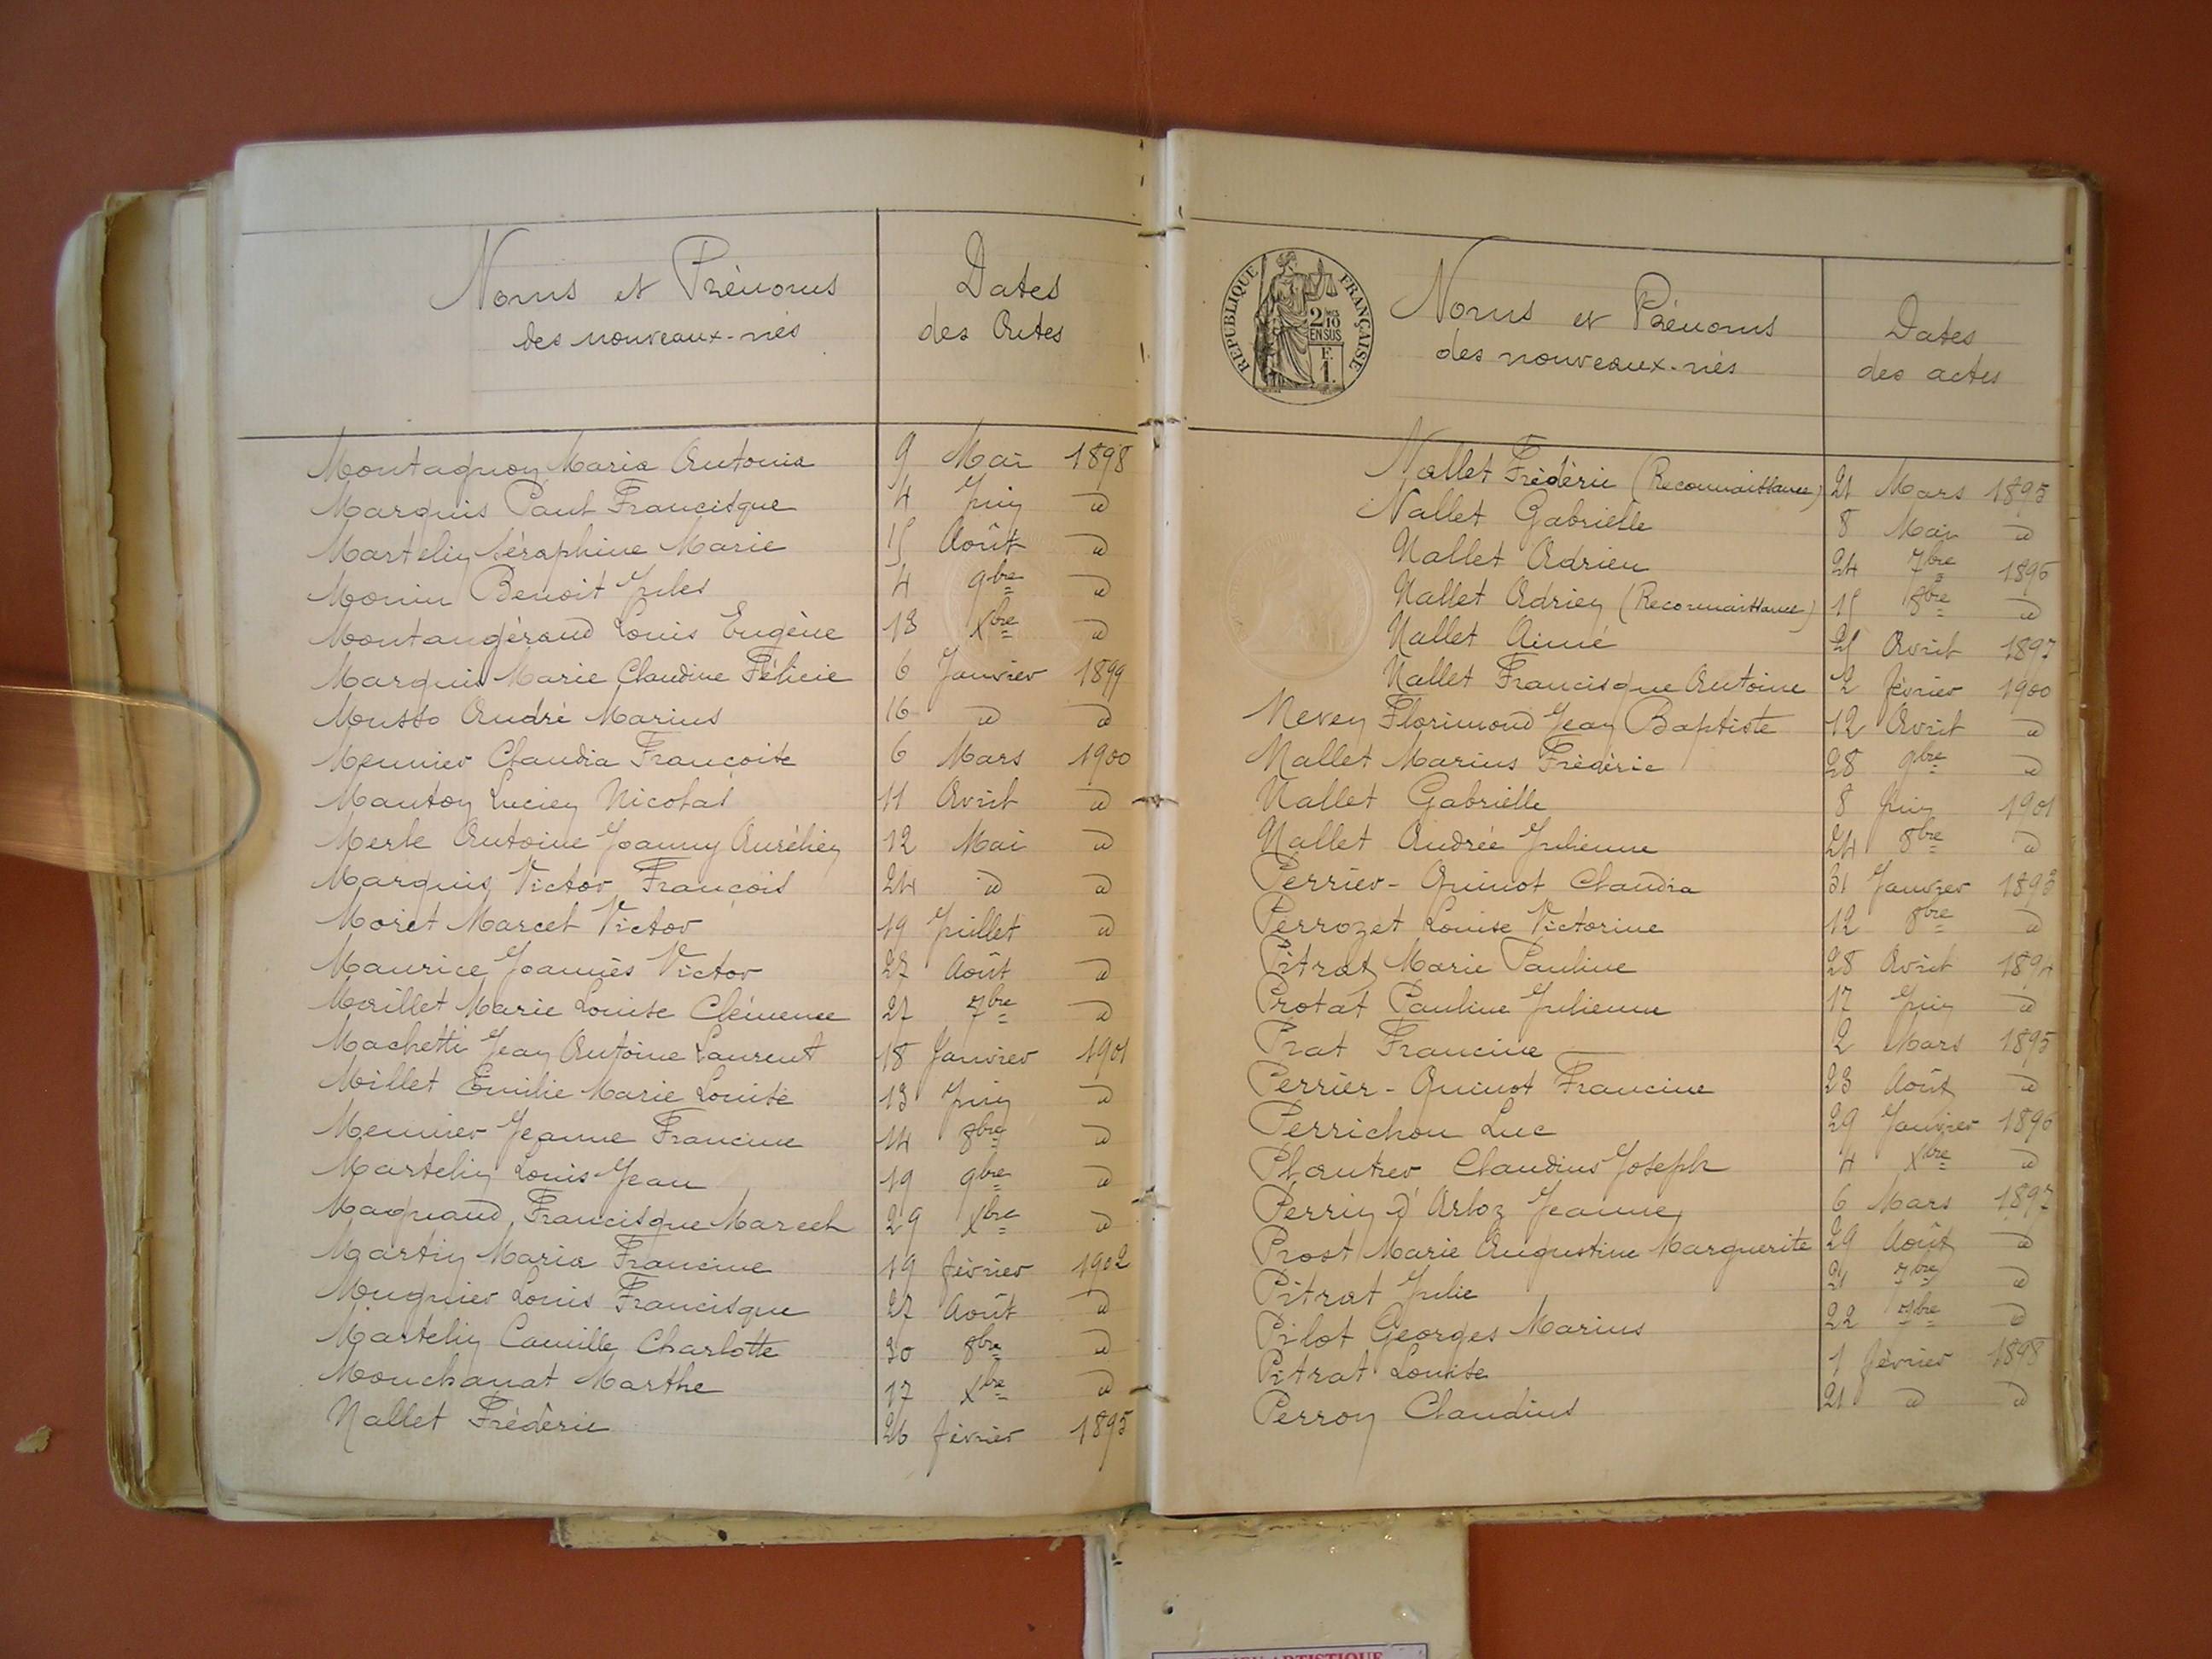 Noms et Prénoms
des nouveaux-nés
Dates
des Actes
Montagnon Maria Antonia 9 Mai 1898
Marquis Paul Francisque 4 Juin d
Martelin Séraphine Marie 15 Août d
Monin Benoit Jules 4 9bre d
Montangérand Louis Eugène 18 Xbre d
Marquis Marie Claudine Félicie 6 Janvier 1899
Musso André Marius 16 d d
Meunier Claudia Françoise 6 Mars 1900
Manton Lucien Nicolas 11 Avril d
Merle Antoine Joanny Aurélien 12 Mai d
Marquis Victor François 24 d d
Moret Marcel Victor 19 Juillet d
Maurice Joannès Victor 27 Août d
Maillet Marie Louise Clémence 27 7bre d
Machetti Jean Antoine Laurent 18 Janvier 1901
Millet Emilie Marie Louise 13 Juin d
Meunier Jeanne Francine 14 8bre d
Martelin Louis Jean 19 9bre d
Magnaud Francisque Marcel 29 Xbre d
Martin Maria Francine 19 février 1902
Mugnier Louis Francisque 27 Août d
Martelin Camille Charlotte 30 8bre d
Monchanat Marthe 17 Xbre d
Nallet Frédéric 26 février 1895
REPUBLIQUE FRANÇAISE
2 10 mes
EN SUS
F.
1.
Noms et Prénoms
des nouveaux-nés
Dates
des actes
Nallet Frédéric (Reconnaissance) 21 Mars 1895
Nallet Gabrielle 8 Mai d
Nallet Adrien 24 7bre 1896
Nallet Adrien (Reconnaissance) 15 8bre d
Nallet Aimé 25 Avril 1897
Nallet Francisque Antoine 2 février 1900
Neven Florimond Jean Baptiste 12 Avril d
Nallet Marius Frédéric 28 9bre d
Nallet Gabrielle 8 Juin 1901
Nallet Andrée Julienne 24 8bre d
Perrier-Quinot Claudia 31 Janvier 1893
Perrozet Louise Victorine 12 8bre d
Pitrat Marie Pauline 28 Avril 1894
Protat Pauline Julienne 17 Juin d
Prat Francine 2 Mars 1895
Perrier-Quinot Francine 23 Août d
Perrichon Luc 29 Janvier 1896
Plautier Claudius Joseph 4 Xbre d
Perrin d'Arloz Jeanne 6 Mars 1897
Prost Marie Augustine Marguerite 29 Août d
Pitrat Julie 21 7bre d
Pilot Georges Marius 22 7bre d
Pitrat Louise 1 février 1898
Perron Claudius 21 d d
ARTISTIQUE